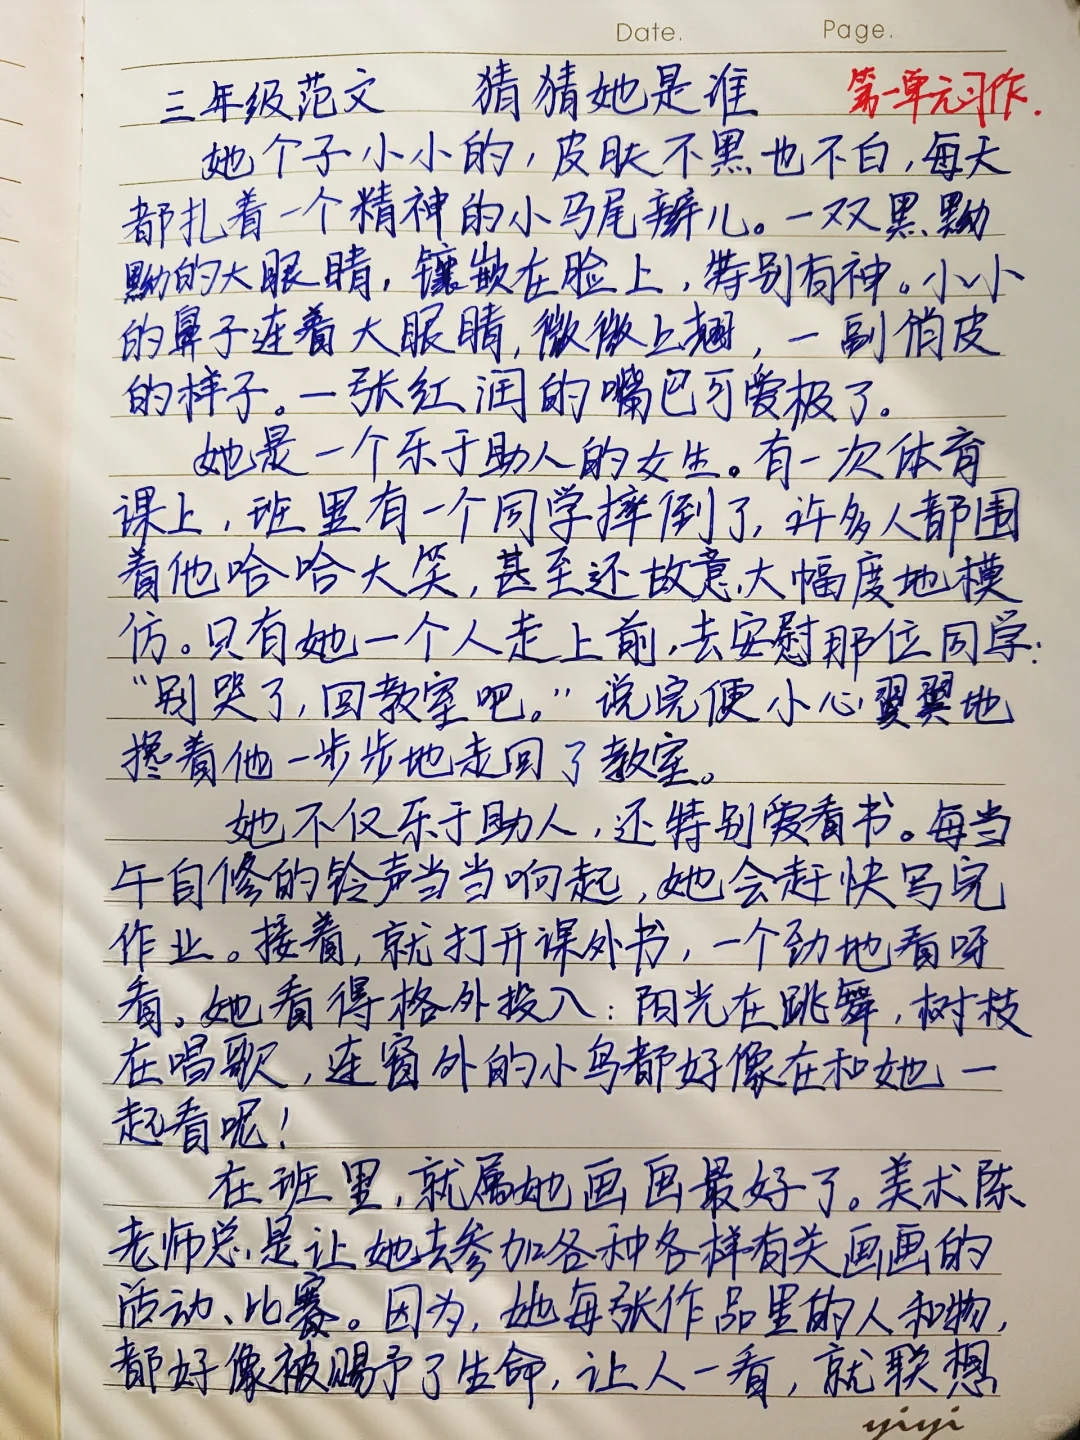 Date. Page.
三年级范文 猜猜她是谁 第一单元习作.
她个子小小的,皮肤不黑也不白,每天
都扎着一个精神的小马尾辫儿。一双黑黝
黝的大眼睛,镶嵌在脸上,特别有神。小小
的鼻子连着大眼睛,微微上翘,一副俏皮
的样子。一张红润的嘴巴可爱极了。
她是一个乐于助人的女生。有一次体育
课上,班里有一个同学摔倒了,许多人都围
着他哈哈大笑,甚至还故意大幅度地模
仿。只有她一个人走上前,去安慰那位同学:
“别哭了,回教室吧。”说完便小心翼翼地
搀着他一步步地走回了教室。
她不仅乐于助人,还特别爱看书。每当
午自修的铃声当当响起,她会赶快写完
作业。接着,就打开课外书,一个劲地看呀
看。她看得格外投入:阳光在跳舞,树枝
在唱歌,连窗外的小鸟都好像在和她一
起看呢!
在班里,就属她画画最好了。美术陈
老师总是让她去参加各种各样有关画画的
活动、比赛。因为,她每张作品里的人和物,
都好像被赐予了生命,让人一看,就联想
yiyi